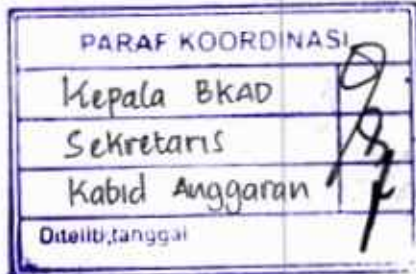 PARAF KOORDINASI
Kepala BKAD
Sekretaris
Kabid Anggaran
Diteliti,tanggal